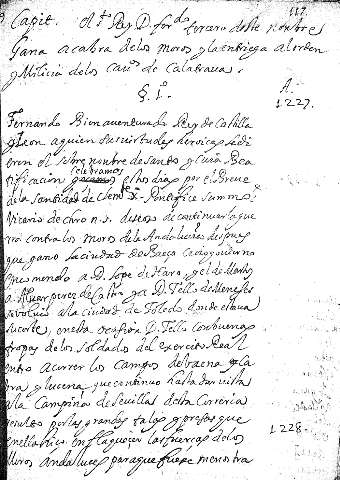 117
Capit. El sto Rey D. ferdo tercero deste nombre
Gana a cabra de los moros y la entriega al orden
y Milicia de los Cavos de Calatrava.
§. 1º
A.
1227.
Fernando Bienaventurado Rey de Castilla
y Leon a quien sus virtudes heroicas le di
eron el sobre nombre de santo y cuia Bea
tificacion celebramos estos dias por el Breve
de la santidad de Clemte X. Pontifice summo
Vicario de Chro n. s. deseoso de continuar la gue
rra contra los moros de la Andalucia despues
que gano la ciudad de Baeça cuyo govierno
encomendo a D. Lope de Haro, y el de Martos
a Alvar perez de Castro y a D. Tello de Meneses
se volvio a la ciudad de Toledo donde estava
su corte, en esta ocasion D. Tello con buenas
tropas de los soldados del exercito Real
entro a correr los campos de baena y Ca
bra y lucena que continuo hasta dar vista
a la Campiña de Sevilla desta Correria
por las grandes talas y presas que
en ella hico enflaquecer las fuercas de los
1228.
Moros Andaluces para que fuese menos tra